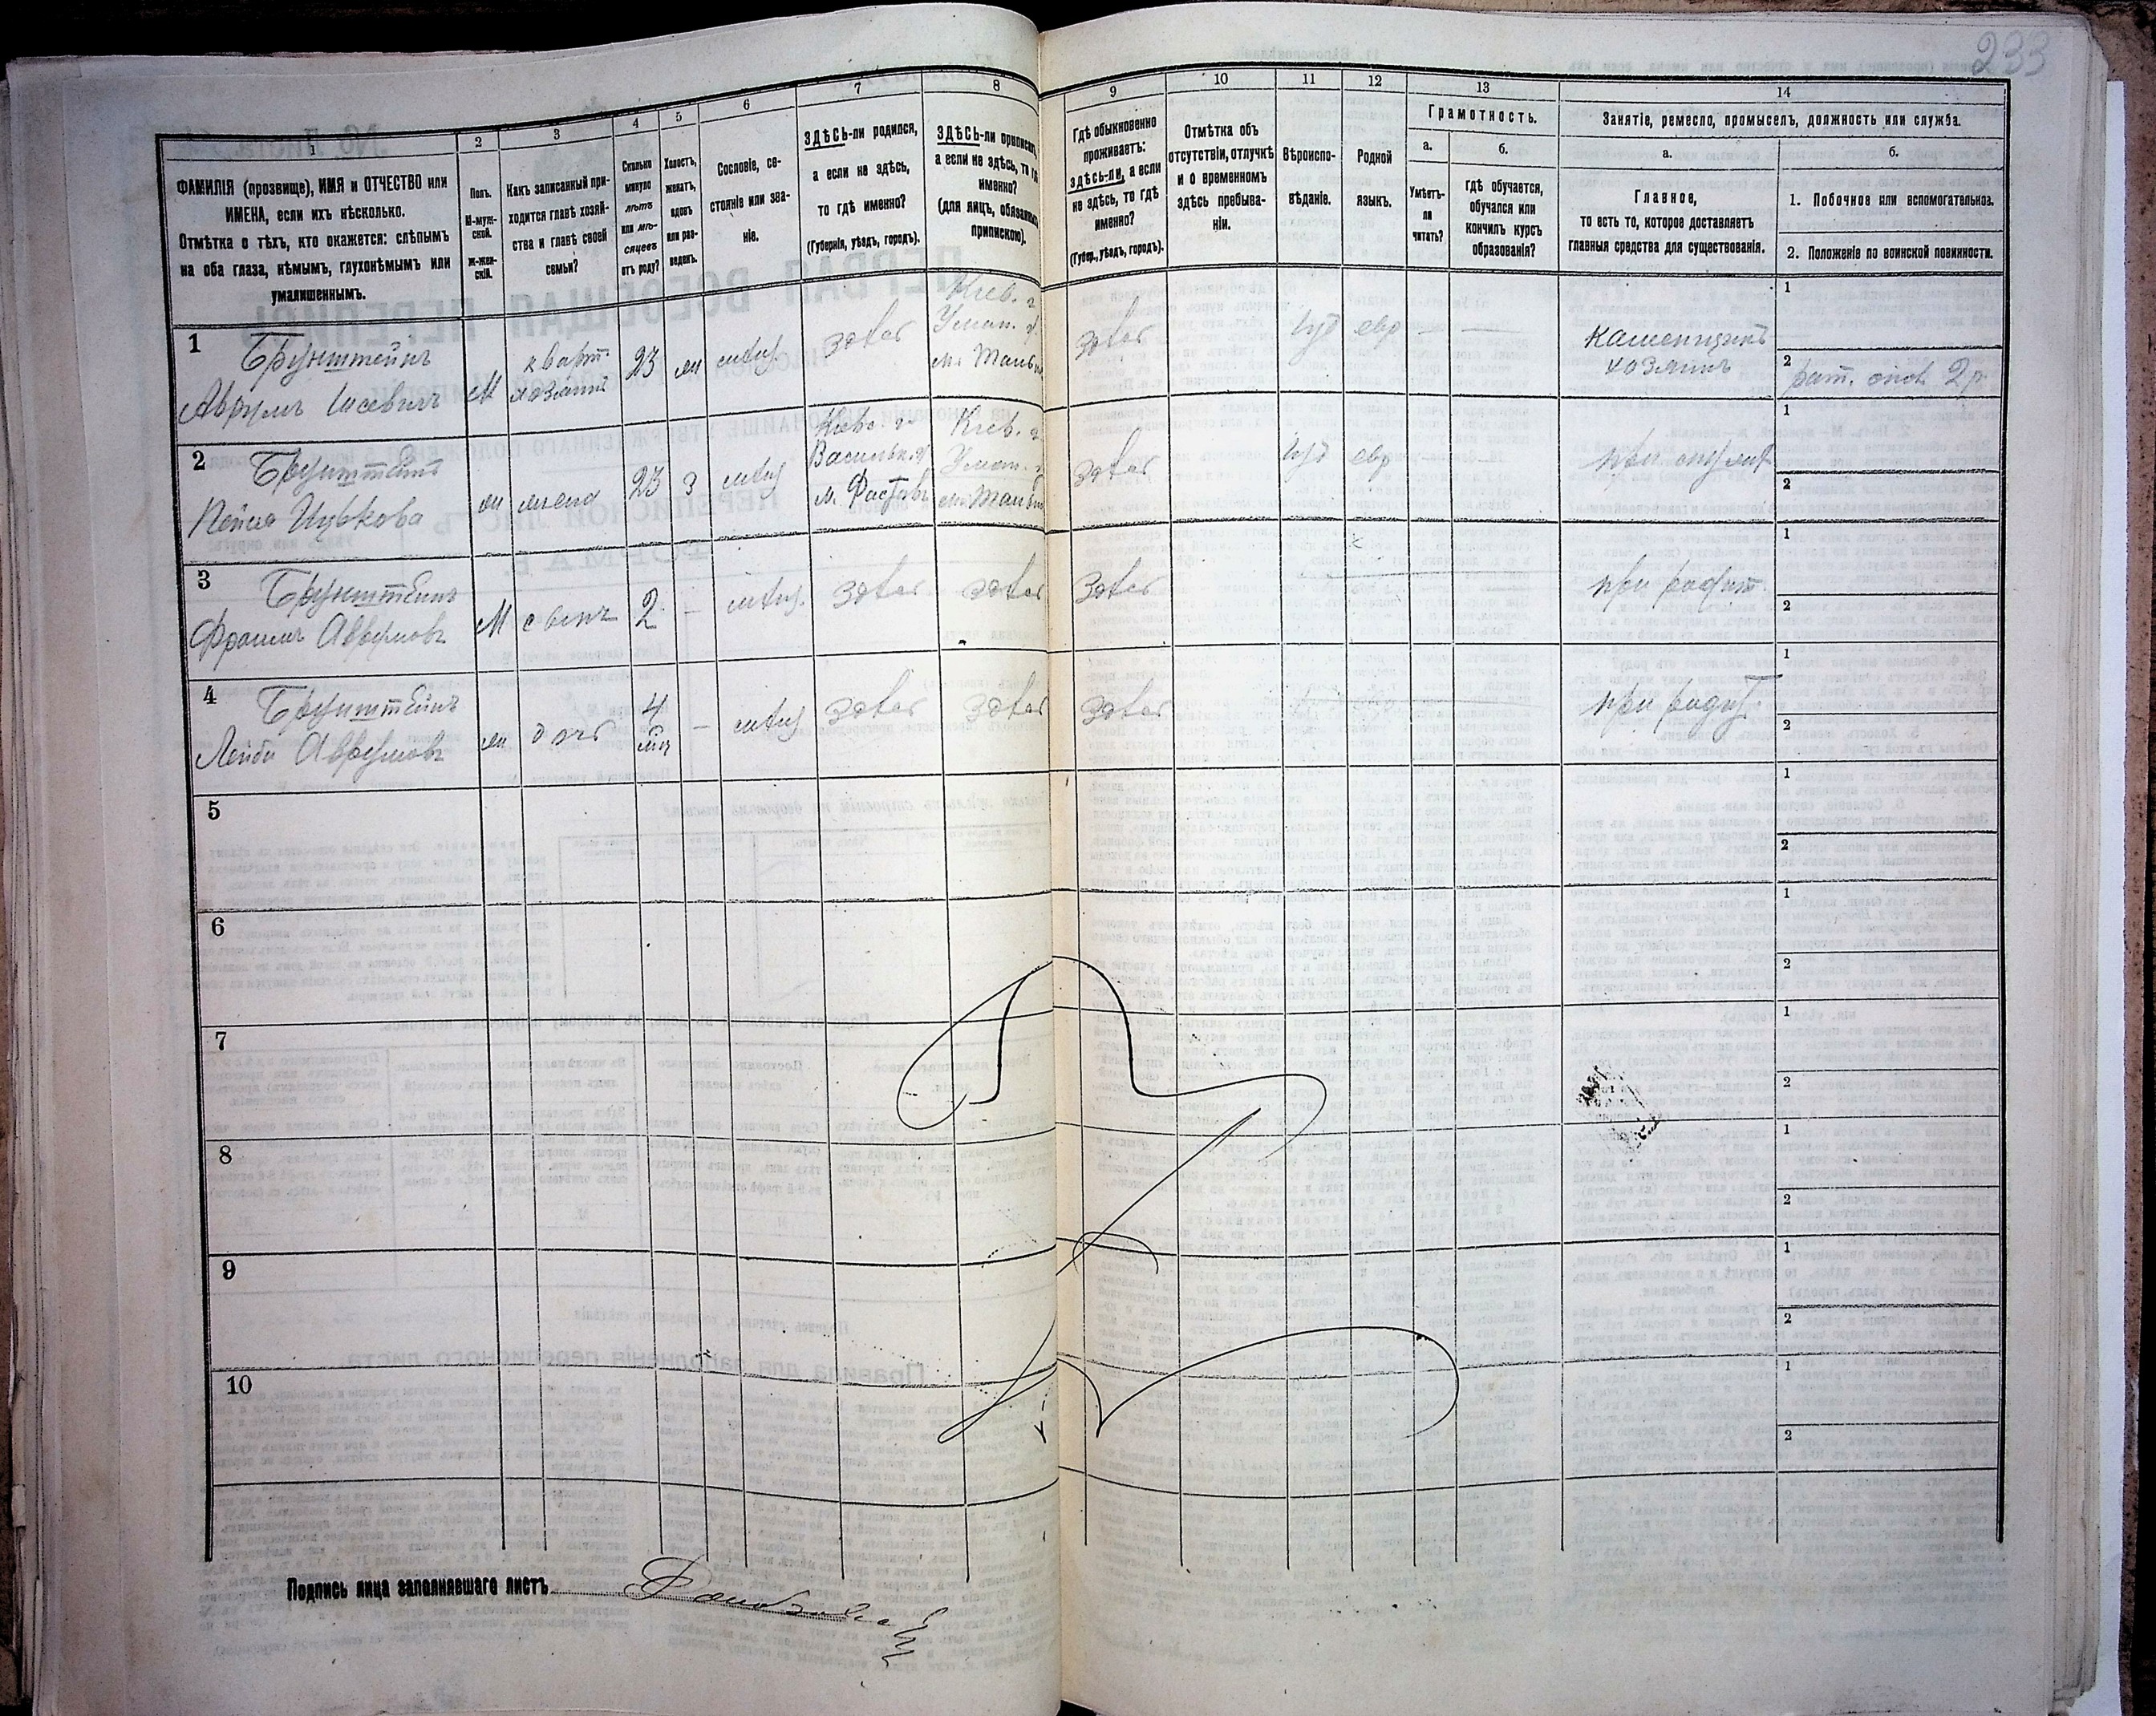 233
1
2
3
4
5
6
7
8
ФАМИЛІЯ (прозвище), ИМЯ и ОТЧЕСТВО или
ИМЕНА, если ихъ нѣсколько.
Отмѣтка о тѣхъ, кто окажется: слѣпымъ
на оба глаза, нѣмымъ, глухонѣмымъ или
умалишеннымъ.
Полъ.
М-муж-
ской.
Ж-жен-
скій.
Какъ записанный при-
ходится главѣ хозяй-
ства и главѣ своей
семьи?
Сколько
минуло
лѣтъ
или мѣ-
сяцевъ
отъ роду?
Холостъ,
женатъ,
вдовъ
или раз-
веденъ.
Сословіе, со-
стояніе или зва-
ніе.
ЗДѢСЬ-ли родился,
а если не здѣсь,
то гдѣ именно?
(Губернія, уѣздъ, городъ).
ЗДѢСЬ-ли приписанъ,
а если не здѣсь, то гдѣ
именно?
(для лицъ, обязанныхъ
припискою).
9
10
11
12
13
14
Гдѣ обыкновенно
проживаетъ:
здѣсь-ли, а если
не здѣсь, то гдѣ
именно?
(Губер., уѣздъ, городъ).
Отмѣтка объ
отсутствіи, отлучкѣ
и о временномъ
здѣсь пребыва-
ніи.
Вѣроиспо-
вѣданіе.
Родной
языкъ.
Грамотность.
а.
Умѣетъ-
ли
читать?
б.
гдѣ обучается,
обучался или
кончилъ курсъ
образованія?
Занятіе, ремесло, промыселъ, должность или служба.
а.
Главное,
то есть то, которое доставляетъ
главныя средства для существованія.
б.
1. Побочное или вспомогательное.
2. Положеніе по воинской повинности.
1
Брунштейнъ
Аврумъ
М
кварт.
хозяинъ
23
жн
мѣщ.
здѣсь
Кіев. г
Уман. у.
м. Тальн
здѣсь
іуд
евр
—
—
хозяинъ
1
2
рат. опол. 2 р.
2
Брунштейнъ
Пейся Ицькова
жн
жена
23
з
мѣщ
Кіев. г
Васильк. у
м. Фастовъ
Кіев. г
Уман. у
м. Тальн
здѣсь
іуд
евр
1
2
3
Брунштейнъ
Аврумовъ
М
сынъ
2
—
мѣщ.
здѣсь
здѣсь
здѣсь
при родит.
1
2
4
Брунштейнъ
Аврумовъ
жн
дочь
4
мѣц
—
мѣщ
здѣсь
здѣсь
здѣсь
при родит.
1
2
5
1
2
6
1
2
7
1
2
8
1
2
9
1
2
10
1
2
Подпись лица заполнявшаго листъ